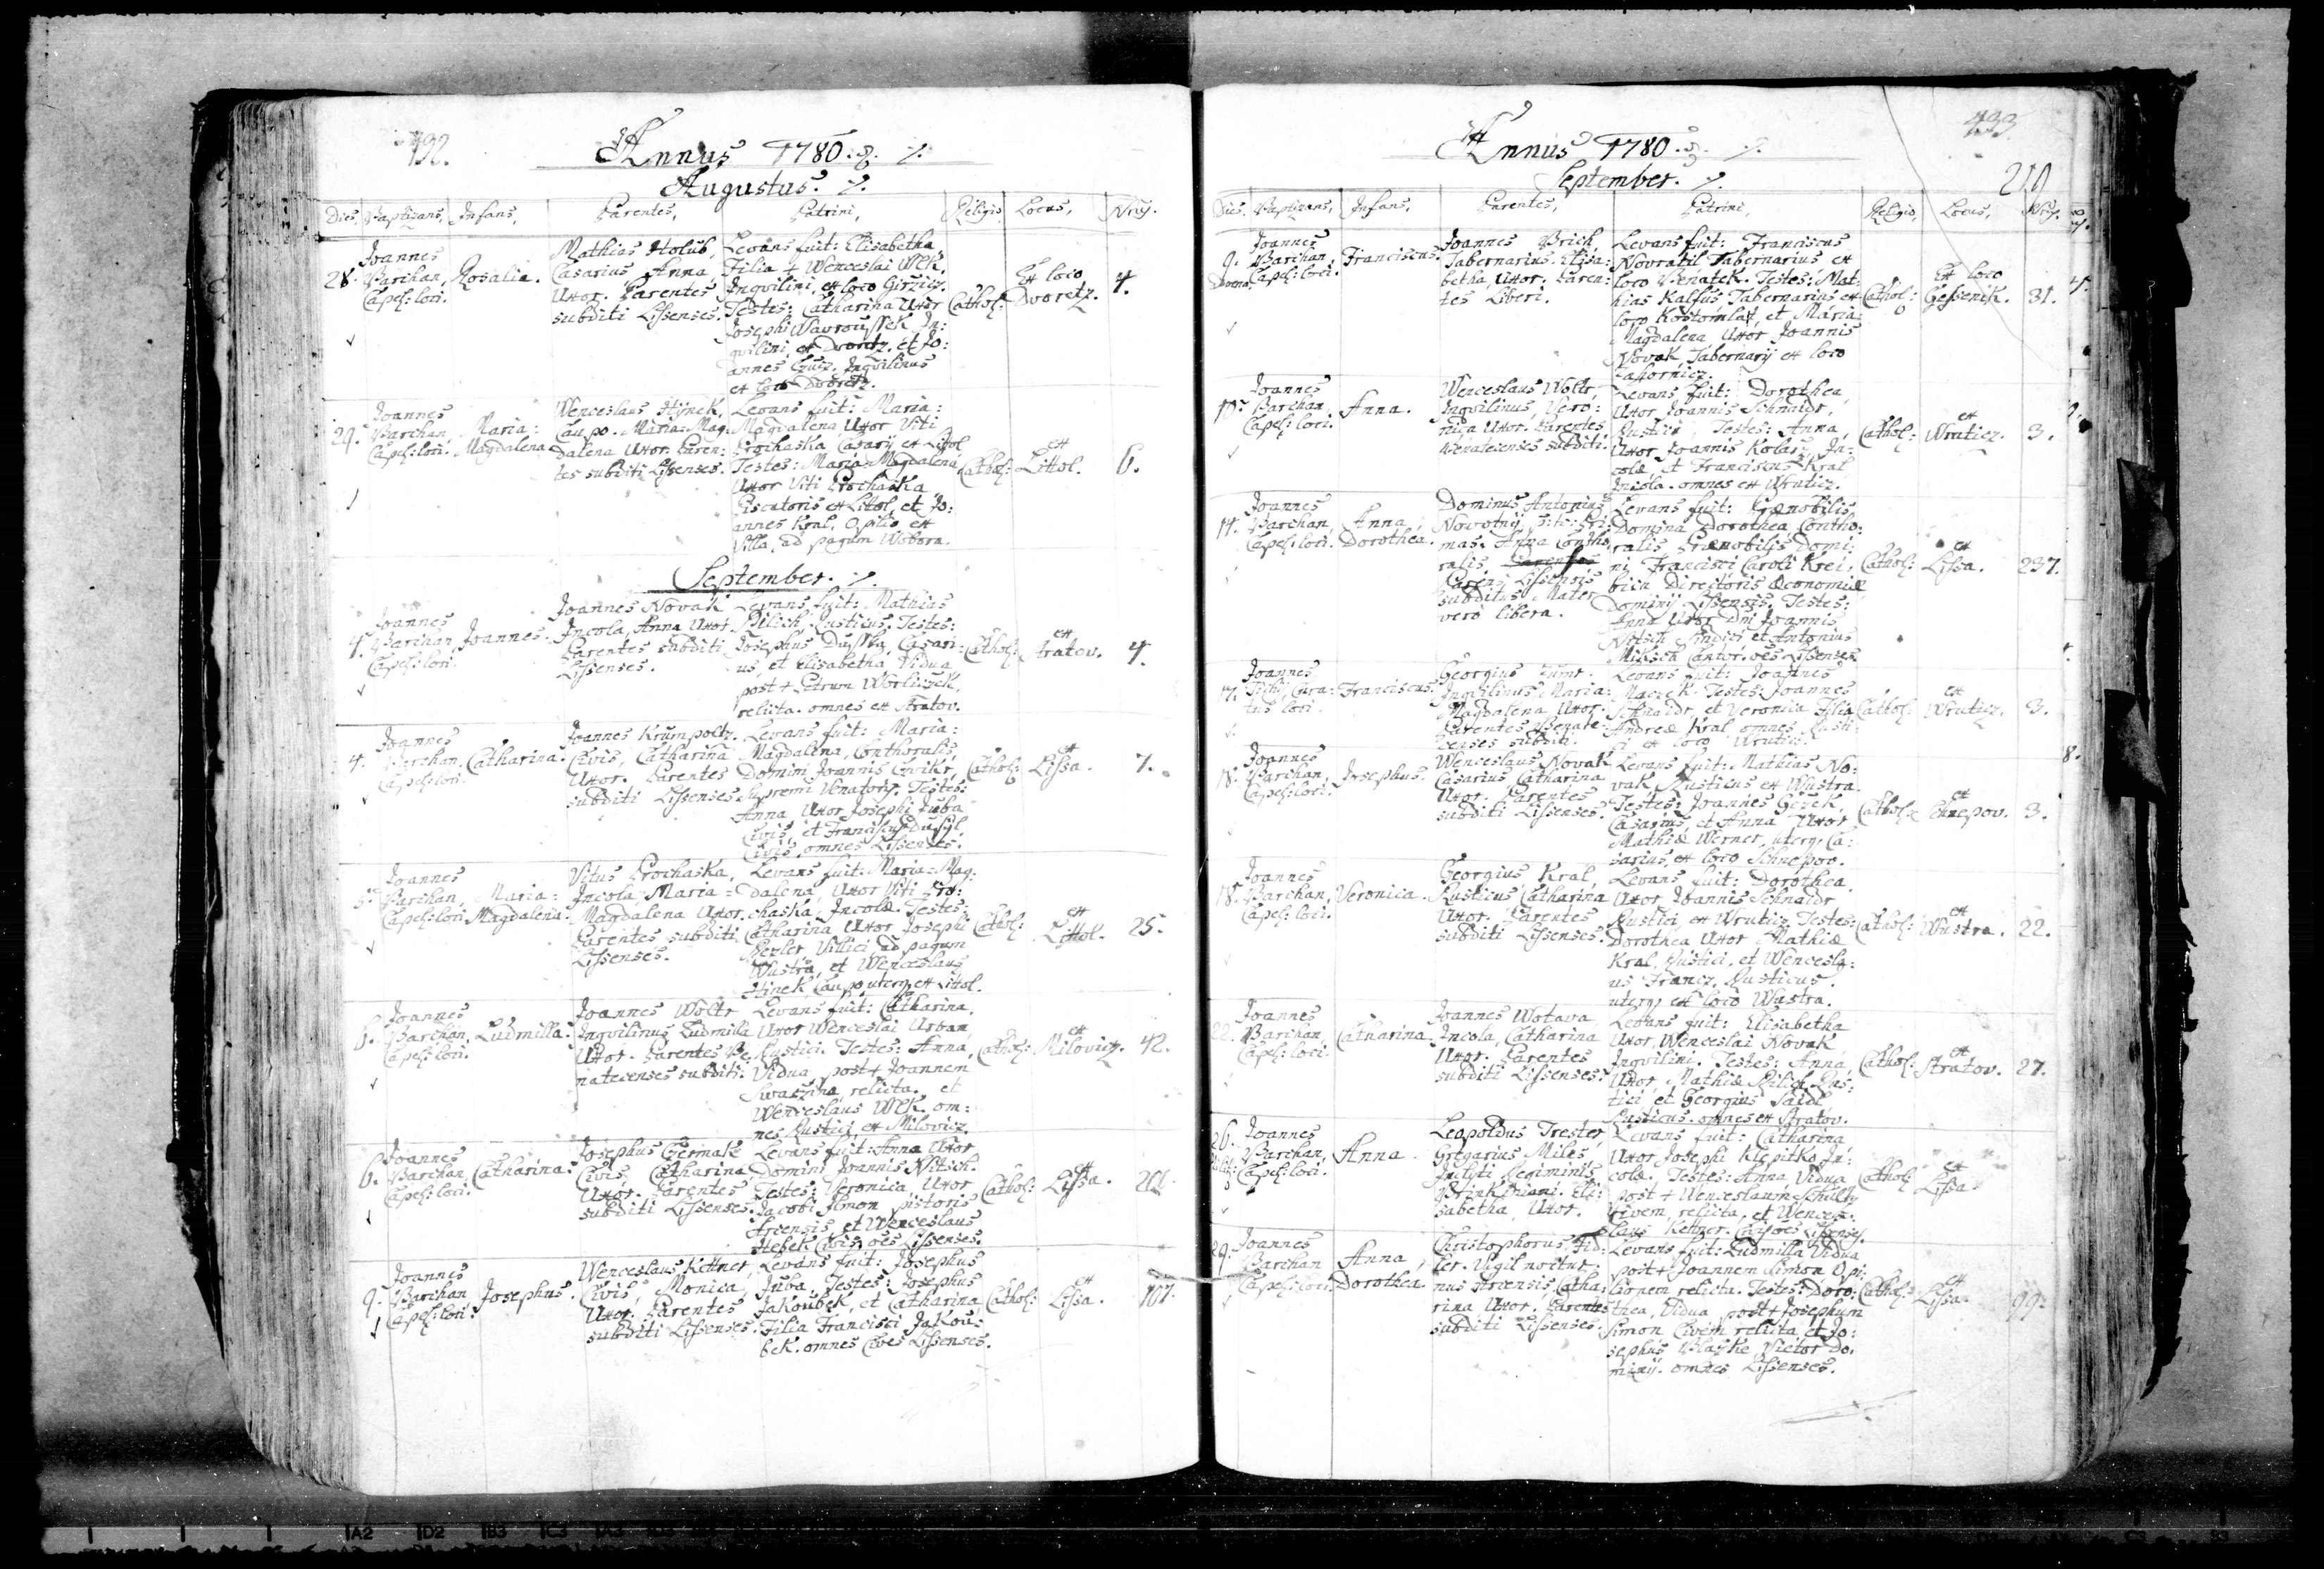 Annus 1780.
Augustus.
Dies, Baptizans, Infans, Parentes, Patrini, Religio, Locus, Nrus.
28. Joannes Barchan, Capel: loci.
Rosalia.
Mathias Holub,
Casarius, Anna
Uxor. Parentes
subditi Lissenses.
Levans fuit: Elisabetha,
Filia + Wenceslai Wlk,
Inquilini, ex loco Girzicz.
Testes: Catharina Uxor
Josephi Wavroussek In:
quilini, ex Dvoretz, et Jo:
annes Inquilinus
ex loco Dvoretz.
Cathol:
Ex loco
Dvoretz.
4.
29. Joannes
Barchan,
Capel: loci.
Maria:
Magdalena
Wenceslaus Hynek,
Caupo. Maria-Mag-
dalena Uxor. Paren:
tes subditi Lissenses.
Levans fuit: Maria:
Magdalena Uxor Viti
Prochaska Casarij ex Littol
Testes: Maria-Magdalena
Uxor Viti Prochaska
Piscatoris ex Littol, et Jo:
annes Kral, Opilio ex
Villa ad pagum Wobora.
Cathol:
ex
Littol.
6.
September.
4. Joannes
Barchan,
Capel: loci.
Joannes.
Joannes Novak
Incola, Anna Uxor
Parentes subditi
Lissenses.
Levans fuit: Mathias
Pilich Rusticus. Testes:
Josephus Dusska, Casari:
us, et Elisabetha Vidua
post + Petrum Worliczek,
relicta. omnes ex Stratov.
Cathol:
ex
Stratov.
4.
4. Joannes
Barchan,
Capel: loci.
Catharina.
Joannes Krumpoltz,
Civis, Catharina
Uxor. Parentes
subditi Lissenses.
Levans fuit: Maria:
Magdalena, Conthoralis
Domini Joannis
Supremi Venatoris. Testes:
Anna Uxor Josephi Juba
Civis, et Franciscus
Civis, omnes Lissenses.
Cathol:
ex
Lissa.
7.
5. Joannes
Barchan,
Capel: loci
Maria:
Magdalena.
Vitus Prochaska,
Incola, Maria =
Magdalena Uxor.
Parentes subditi
Lissenses.
Levans fuit: Maria=Mag:
dalena Uxor Viti Pro:
chaska, Incolæ. Testes:
Catharina Uxor Josephi
Villici ad pagum
Wustra, et Wenceslaus
Hinek Caupo uterq ex Littol.
Cathol:
ex
Littol.
25.
6. Joannes
Barchan,
Capel: loci.
Ludmilla.
Joannes Woltr
Inquilinus Ludmilla
Uxor. Parentes Be:
natecenses subditi.
Levans fuit: Catharina,
Uxor Wenceslai Urban,
Rustici. Testes: Anna,
Vidua post + Joannem
relicta, et
Wenceslaus Wlk. om:
nes Rustici ex Milovicz.
Cathol:
ex
Milovicz.
42.
6. Joannes
Barchan
Capel: loci.
Catharina.
Josephus Czermak
Civis, Catharina
Uxor. Parentes
subditi Lissenses.
Levans fuit: Anna Uxor
Domini Joannis Nitsch.
Testes: Veronica Uxor
Jacobi Simon pistoris
Arcensis, et Wenceslaus
Hebek Civis, oes Lissenses.
Cathol:
ex
Lissa.
9. Joannes
Barchan
Capel: loci.
Josephus.
Wenceslaus Kettner,
Civis, Monica,
Uxor. Parentes
subditi Lissenses.
Levans fuit: Josephus
Juba, Testes: Josephus
Jakoubek, et Catharina
Filia Francisci Jakou:
bek. omnes Cives Lissenses.
Cathol:
ex
Lissa.
107.
Annus 1780.
September.
210
Dies. Baptizans, Infans, Parentes, Patrini, Religio, Locus, Nrus.
9. Joannes
Barchan,
Capel: loci.
Franciscus.
Joannes Brich,
Tabernarius. Elisa:
betha, Uxor. Paren:
tes Liberi.
Levans fuit: Franciscus
Novratil Tabernarius ex
loco Benatek. Testes: Mat:
hias Kalfus Tabernarius ex
loco Kostomlat, et Maria:
Magdalena Uxor Joannis
Novak, Tabernarij ex loco
Cathol:
Ex loco
Gessenik.
31.
10. Joannes
Barchan,
Capel: loci.
Anna.
Wenceslaus Woltr,
Inquilinus, Vero:
nica Uxor. Parentes
Benatecenses subditi.
Levans fuit: Dorothea,
Uxor Joannis Schnaidr,
Rustici. Testes: Anna,
Uxor Joannis Kolarz, In:
colæ, et Franciscus Kral
Incola. omnes ex Wruticz.
Cathol:
ex
Wruticz.
3.
14. Joannes
Barchan,
Capel: loci.
Anna,
Dorothea.
Dominus Antonius
Novotny,
mas. Anna Contho:
ralis.
Parens Lissensis
subditus Mater
vero libera.
Levans fuit: Prænobilis
Domina Dorothea Contho:
ralis Prænobilis Domi:
ni Francisci Caroli Krei:
bich Directoris Œconomiæ
Dominij Lissensis. Testes:
Anna Uxor Dni Joannis
Nitsch Sindici et Antonius
Miksch Cantor. oes Lissenses
Cathol:
ex
Lissa.
237.
17. Joannes
Tichy, Cura:
tus loci.
Franciscus.
Georgius
Inquilinus, Maria:
Magdalena Uxor.
Parentes Benate:
censes subditi.
Levans fuit: Joannes
Maczek. Testes: Joannes
Schnaidr, et Veronica Filia
Andreæ Kral, omnes Rusti:
ci ex loco Wruticz.
Cathol:
ex
Wruticz.
3.
18. Joannes
Barchan,
Capel: loci.
Josephus.
Wenceslaus Novak
Casarius Catharina
Uxor. Parentes
subditi Lissenses.
Levans fuit: Mathias No:
vak, Rusticus ex Wustra.
Testes: Joannes
Casarius, et Anna Uxor
Mathiæ Werner, uterq Ca:
sarius, ex loco Schnepov.
Cathol:
ex
Schnepov.
3.
18. Joannes
Barchan,
Capel: loci.
Veronica.
Georgius Kral,
Rusticus, Catharina
Uxor. Parentes
subditi Lissenses.
Levans fuit: Dorothea,
Uxor Joannis Schnaidr
Rustici ex Wruticz. Testes:
Dorothea Uxor Mathiæ
Kral, Rustici, et Wencesla:
us Francz, Rusticus.
uterq ex loco Wustra.
Cathol:
ex
Wustra.
22.
22. Joannes
Barchan,
Capel: loci.
Catharina
Joannes Wotava
Incola, Catharina
Uxor. Parentes
subditi Lissenses.
Levans fuit: Elisabetha
Uxor Wenceslai Novak
Inquilini. Testes: Anna,
Uxor Mathiæ Pilich Rus:
tici et Georgius Saidl
Rusticus. omnes ex Stratov.
Cathol:
ex
Stratov.
27.
26. Joannes
Barchan,
Capel: loci.
Anna.
Leopoldus Trester,
Gregarius Miles
Inclyti Regiminis
Eli:
sabetha, Uxor.
Levans fuit: Catharina,
Uxor Josephi Klepitko In:
colæ. Testes: Anna Vidua
post + Wenceslaum Schultz
Civem, relicta, et Wences:
laus Kettner. Civis oes Lissenses.
Cathol:
ex
Lissa.
29. Joannes
Barchan
Capel: loci.
Anna,
Dorothea.
Christophorus Fid:
ler. Vigil noctur:
nus Arcensis, Catha:
rina Uxor. Parentes
subditi Lissenses.
Levans fuit: Ludmilla Vidua
post + Joannem Simon Opi:
lionem relicta. Testes: Doro:
thea, Vidua post + Josephum
Simon Civem relicta, et Jo:
sephus Victor Do:
minij. omnes Lissenses.
Cathol:
ex
Lissa.
99.